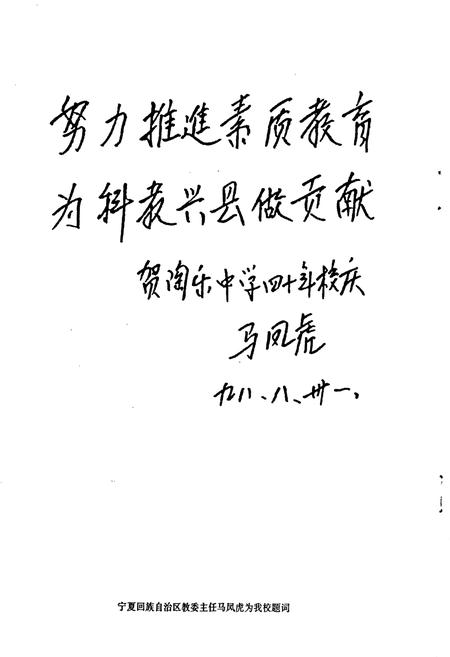 努力推進素质教育
为科教兴县做贡献
贺陶乐中学四十年校庆
马凤虎
九八、八、卅一、
宁夏回族自治区教委主任马凤虎为我校题词